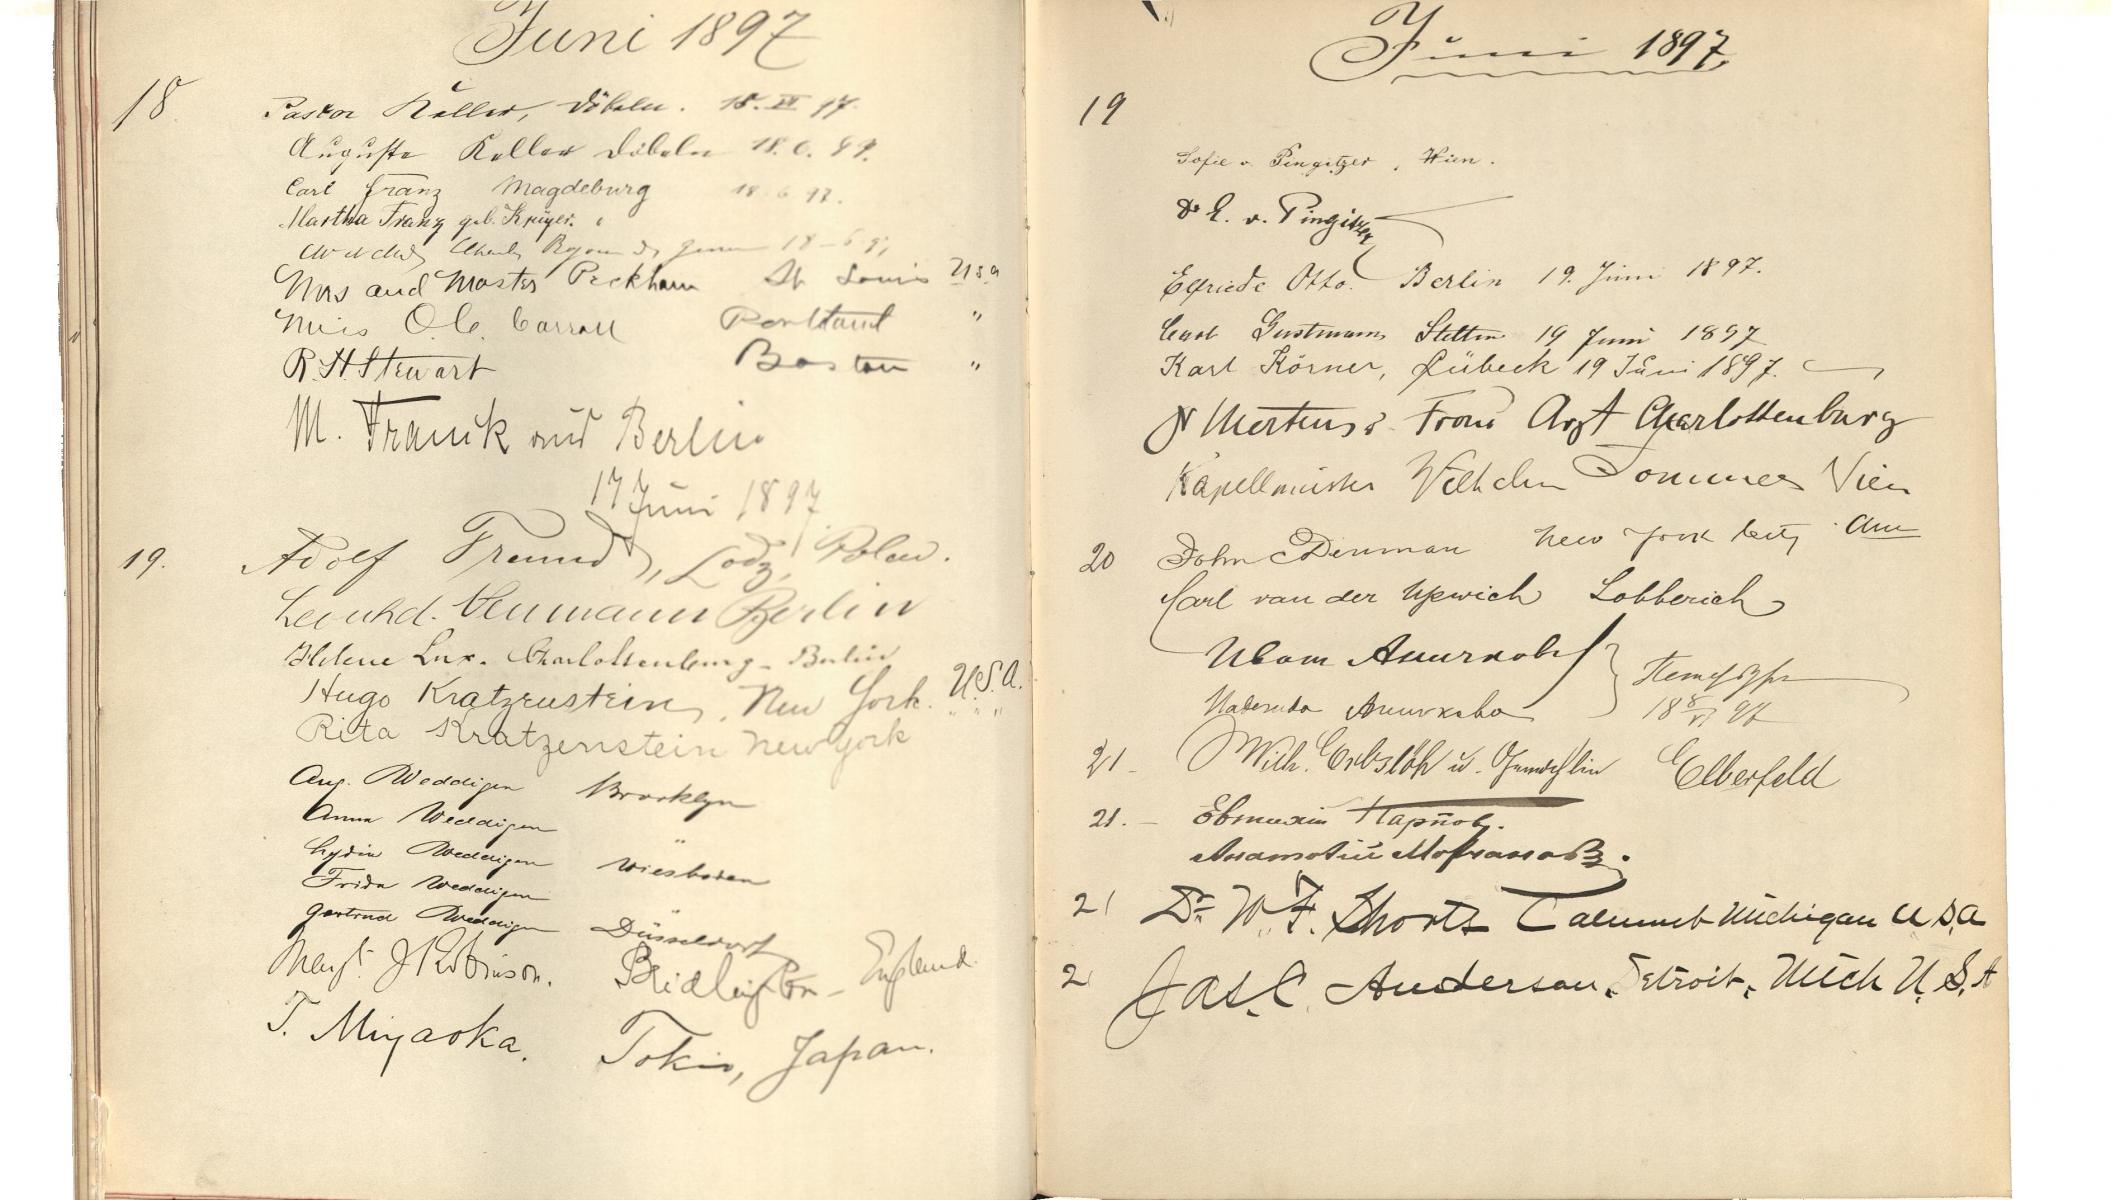 Juni 1897
18.
Pastor Keller, Döbeln. 18. VI 97.
Auguste Keller Döbeln 18. 6. 97.
Carl Franz Magdeburg 18. 6 97.
Martha Franz geb. Krüger. "
18-6-97
Mrs and Master Peckham St Louis Usa
Miss O. C. Carroll Portland "
R. H. Stewart Boston "
M. Frank und Berlin
17 Juni 1897
19.
Adolf Freund, Lodz, Polen.
Leonhd. Neumann Berlin
Helene Lux. Charlottenburg-Berlin
Hugo Kratzenstein, New York. U.S.A.
Rita Kratzenstein New York " " "
Aug. Weddigen Brooklyn
Anna Weddigen "
Lydia Weddigen Wiesbaden
Frida Weddigen "
Gertrud Weddigen Düsseldorf
Margt. J Robinson. Bridlington - England.
T. Miyaoka. Tokio, Japan.
Juni 1897.
19
Sofie v. Pingitzer, Wien.
Dr E. v. Pingitzer
Elfriede Otto. Berlin 19. Juni 1897.
Gustmann Stettin 19 Juni 1897
Karl Körner, Lübeck 19 Juni 1897.
Mertens & Frau Arzt Charlottenburg
Kapellmeister Wilhelm Sommer Wien
20
John C Denman New York City Am
Carl van der Upwich Lobberich
Иван Аничковъ
Надежда Аничкова
18 97
21 -
Wilh. Erbslöh u. Gemahlin Elberfeld
21. -
Евтихий Карповъ.
Анатолий
21
Dr W. F. Shorts Calumet Michigan U S.A
2
Jas. C. Anderson, Detroit, Mich U. S. A